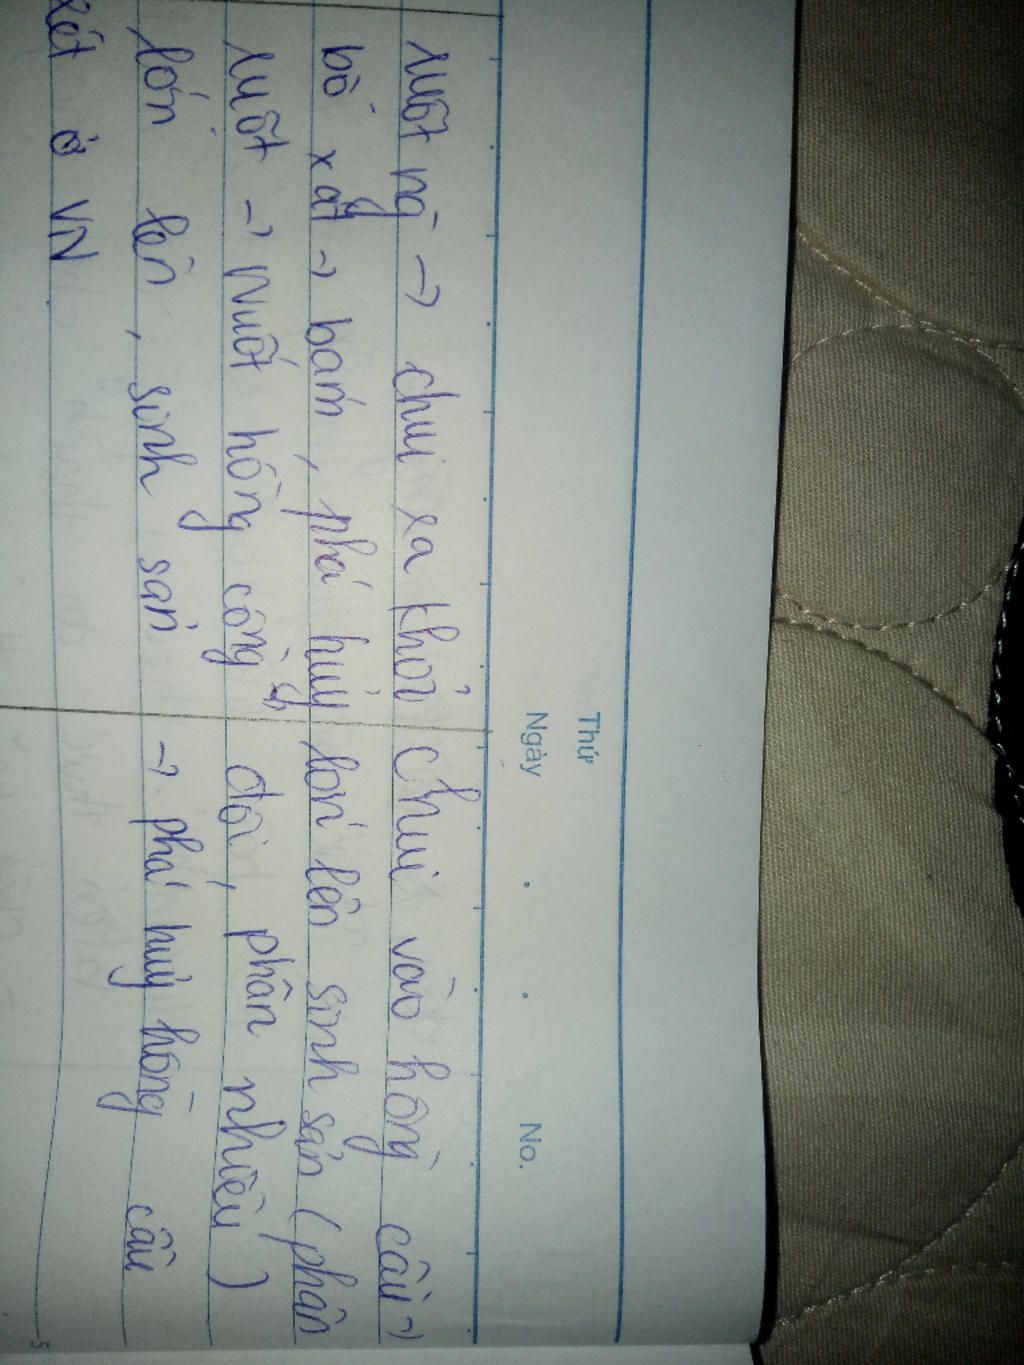 Thứ
Ngày . . No.
ruột ng → chui ra khỏi chui vào hồng cầu →
bổ xẩy → bám, phá huỷ lớn lên sinh sản (phân
ruột → nuốt hồng cầu đôi, phân nhiều)
lớn lên, sinh sản → phá huỷ hồng cầu
rét ở VN
5